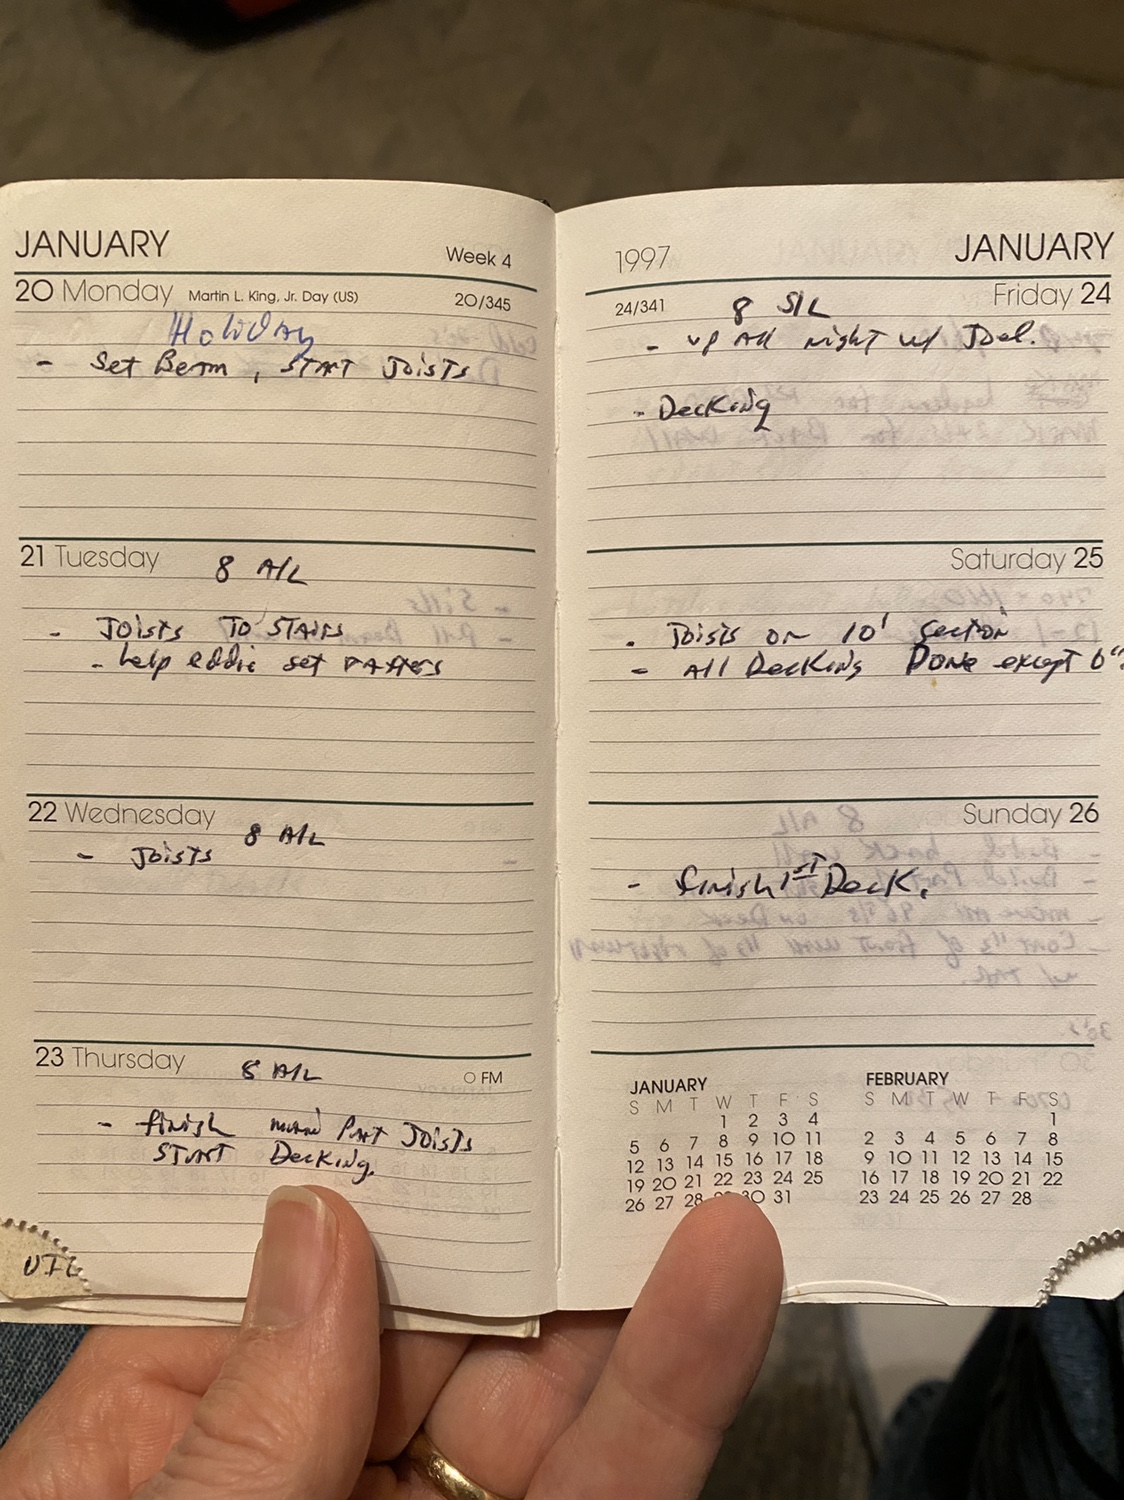 JANUARY
Week 4
20 Monday Martin L. King, Jr. Day (US) 20/345
Holiday
- Set Beam, START Joists
21 Tuesday 8 A/L
- Joists To STAIRS
- help eddie set rafters
22 Wednesday 8 A/L
- Joists
23 Thursday 8 A/L FM
- finish main Part Joists
START Decking.
UTL
1997 JANUARY
24/341 8 S/L Friday 24
- up All night w/ Joel.
- Decking
Saturday 25
- Joists on 10' section
- All Decking Done except 6"
Sunday 26
- finish 1ST Deck.
JANUARY
S M T W T F S
1 2 3 4
5 6 7 8 9 10 11
12 13 14 15 16 17 18
19 20 21 22 23 24 25
26 27 28 30 31
FEBRUARY
S M T W T F S
1
2 3 4 5 6 7 8
9 10 11 12 13 14 15
16 17 18 19 20 21 22
23 24 25 26 27 28